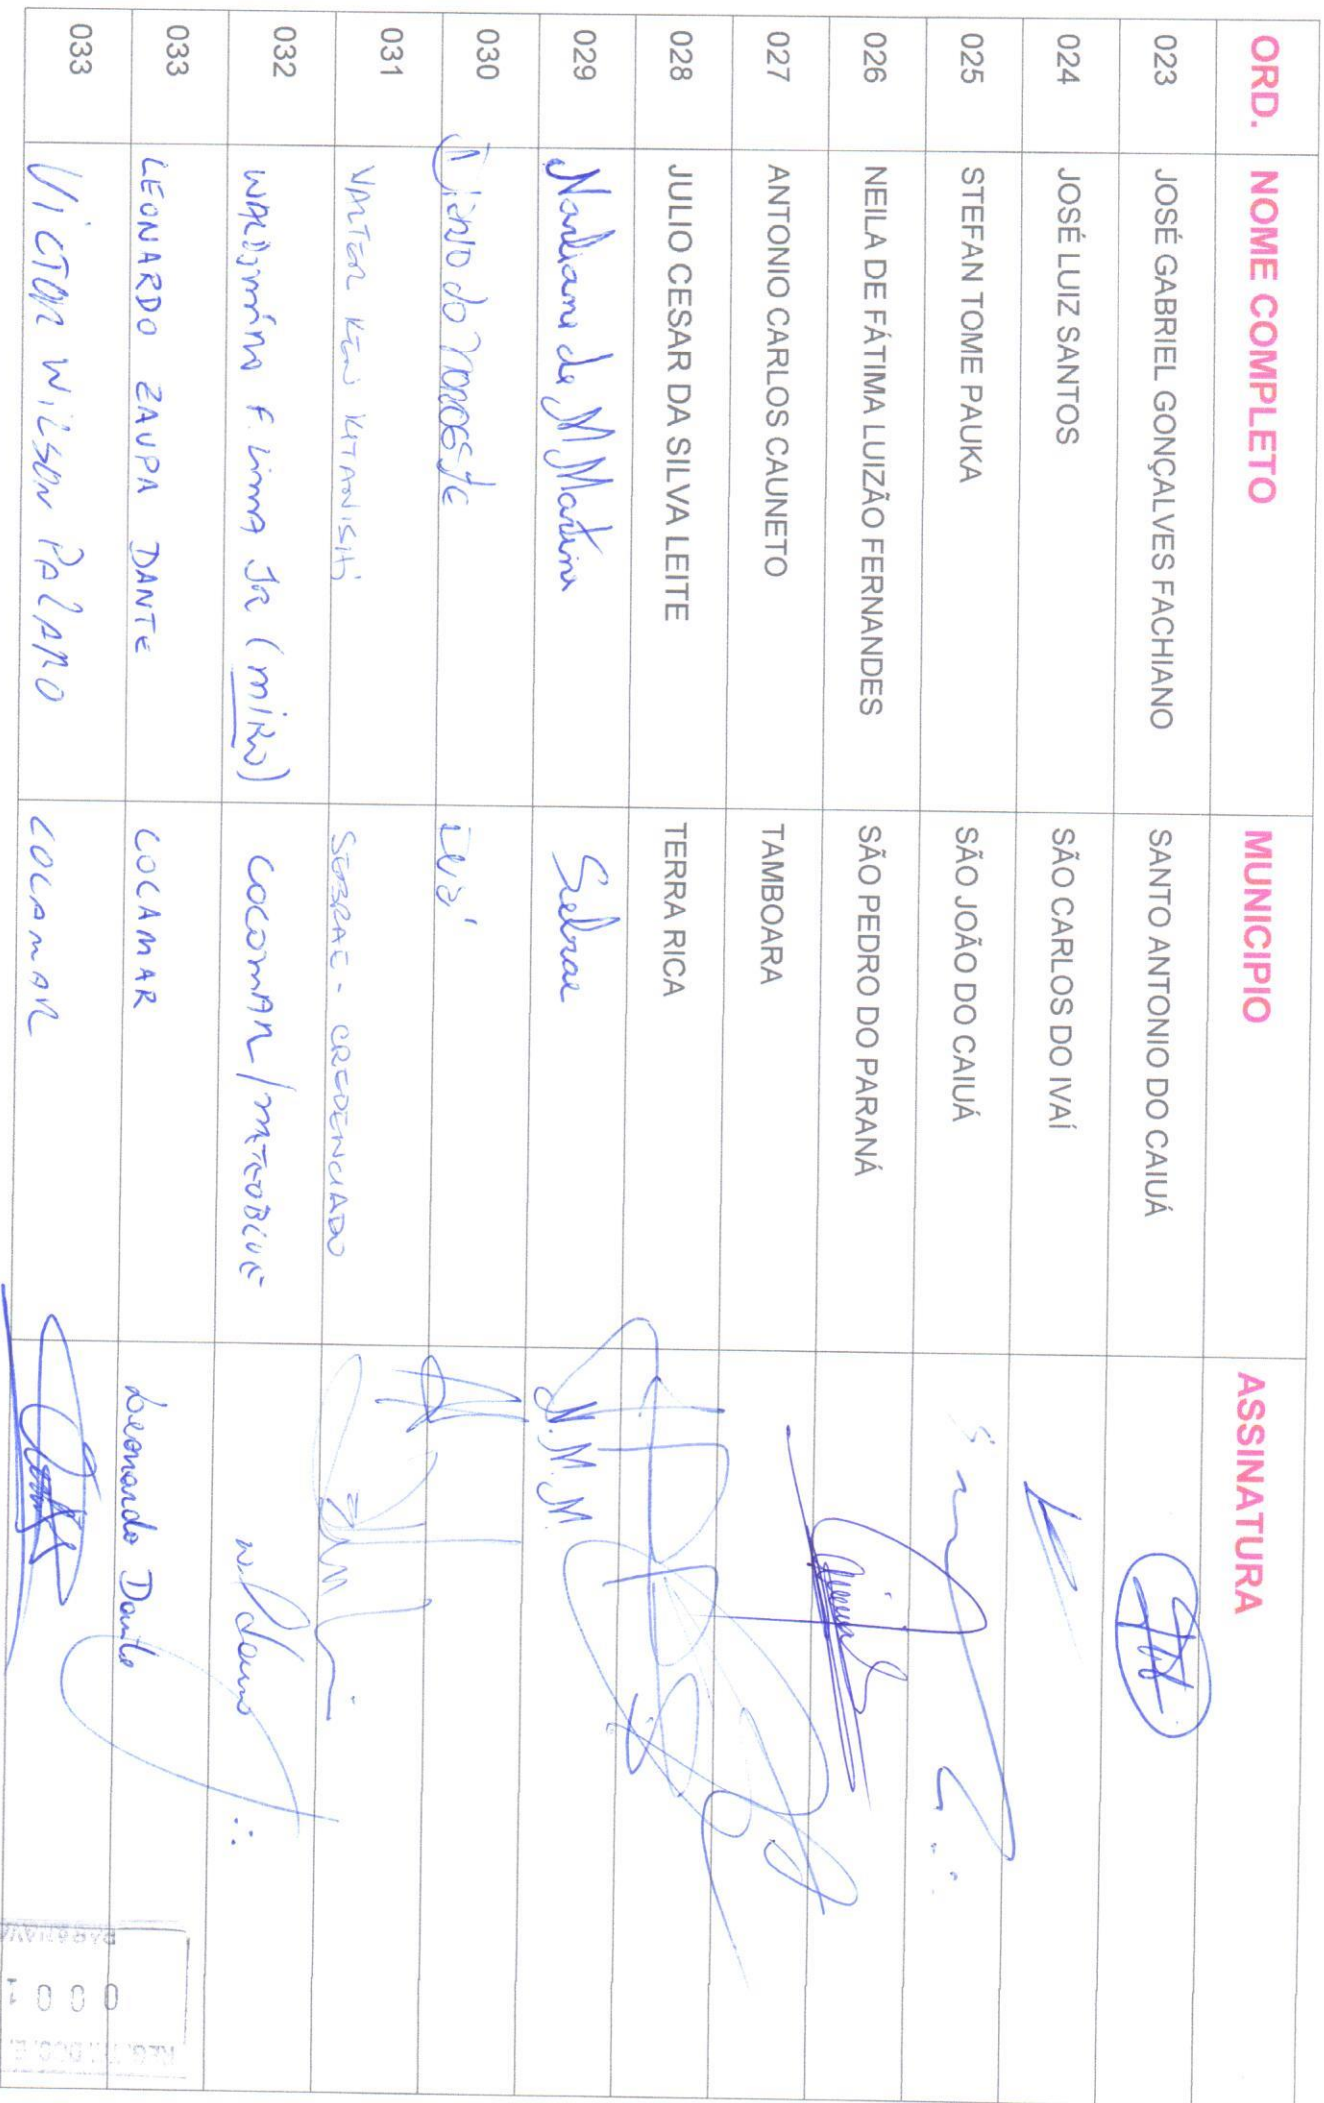 ORD. NOME COMPLETO MUNICIPIO ASSINATURA
023 JOSÉ GABRIEL GONÇALVES FACHIANO SANTO ANTONIO DO CAIUÁ
024 JOSÉ LUIZ SANTOS SÃO CARLOS DO IVAÍ
025 STEFAN TOME PAUKA SÃO JOÃO DO CAIUÁ
026 NEILA DE FÁTIMA LUIZÃO FERNANDES SÃO PEDRO DO PARANÁ
027 ANTONIO CARLOS CAUNETO TAMBOARA
028 JULIO CESAR DA SILVA LEITE TERRA RICA
029 de M Martins Sebrae N.M.M.
030 do
031 VALTER KEN KITANISHI SEBRAE - CREDENCIADO
032 F. Lima JR (MIRO) COCAMAR /
033 LEONARDO ZAUPA DANTE COCAMAR Leonardo Dante
033 VICTOR WILSON PALARO COCAMAR
0001